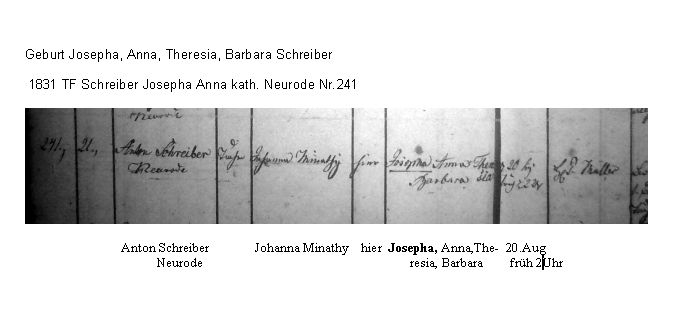 Geburt Josepha, Anna, Theresia, Barbara Schreiber
1831 TF Schreiber Josepha Anna kath. Neurode Nr.241
Neurode
241, 21., Anton Schreiber Johanna Minathy hier Josepha Anna There 20
Neurode Barbara sia früh 2 Uhr
Anton Schreiber Johanna Minathy hier Josepha, Anna,The- 20.Aug
Neurode resia, Barbara früh 2Uhr